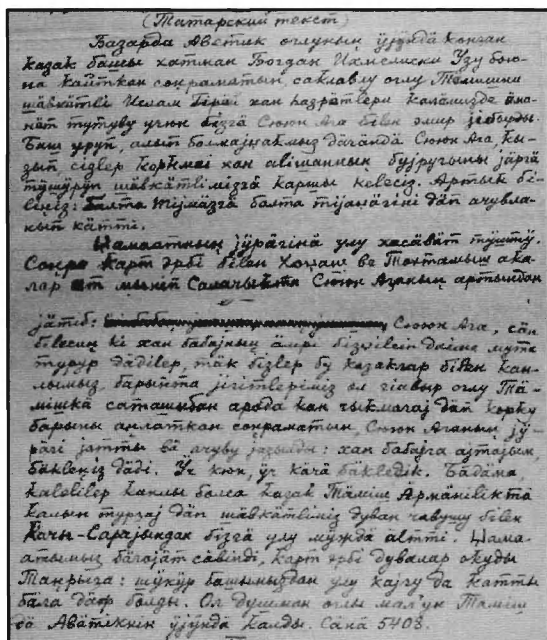 (Татарский текст)
Базарда Аветик оглуның ӱјӱндӓ конган
казак башы хатман Богдан Ихмелиски Узу бою-
на кайткан сонраматын, саклавлу оглу Темишни
шӓвкӓтлі Ислам Гірӓй хан һазретлери калӓмизде ӓмо-
нӓт тутуву учюн бізгӓ Сююн Ага білен эмир јебарды.
Баш уруп, алып болмајнакмыз дӓгӓндӓ Сююн Ага, кы-
зып сізлер коркмаі хан авішаннын бујругыны јӓргӓ
тӱшӱруп шӓвкӓтлімізгӓ каршы келесіз. Артык бі-
лініз: балта тіјмӓзгӓ балта тіјаӓгіні дӓп ачувла-
нып кӓтті.
Џамаатның јӱрӓгінӓ улу хасӓвӓт тӱштӱ.
Сонра карт ӓрбі білен Хоџаш ве Тохтамыш ака-
лар ат мініп Салачыкта Сююн Аганың артындан
јӓтіб: Сююн Ага, сӓн
білесің кі хан бабајның ӓмрі бізгӓ дайма мута
турур дӓділер, тӓк бізлер бу казаклар бівен кан-
лымыз, барыпта јігітлеріміз ол гіавыр оглу Тӓ-
мішкӓ саташыбан арода кан чыкмагај дӓп корку
барыны аңлаткан сонраматын, Сююн Аганың јӱ-
рӓгі јатты вӓ ачуву јазылды: хан бабајга ајтајым,
бӓкленіз дӓді. Уч кюн, ӱч кӓчӓ бӓкледік. Бӓдӓма,
калебілер каплы болса казак Тӓміш Ӓрмӓнілікта
калын тургај дӓп шӓвкӓтліміз дуван чавушу білен
Качы-Сарајындан бізгӓ улу мужда ӓтті. Џама-
атымыз багојат сӓвінді, карт ӓрбі дувалар окуды
Таңрыга: шукур башымыздан улу кајгу да катты
бӓла дӓф болды. Ол душман оглы мал'ун Таміш
дӓ Аветікнің ӱјӱндӓ калды. Сӓнӓ 5408.